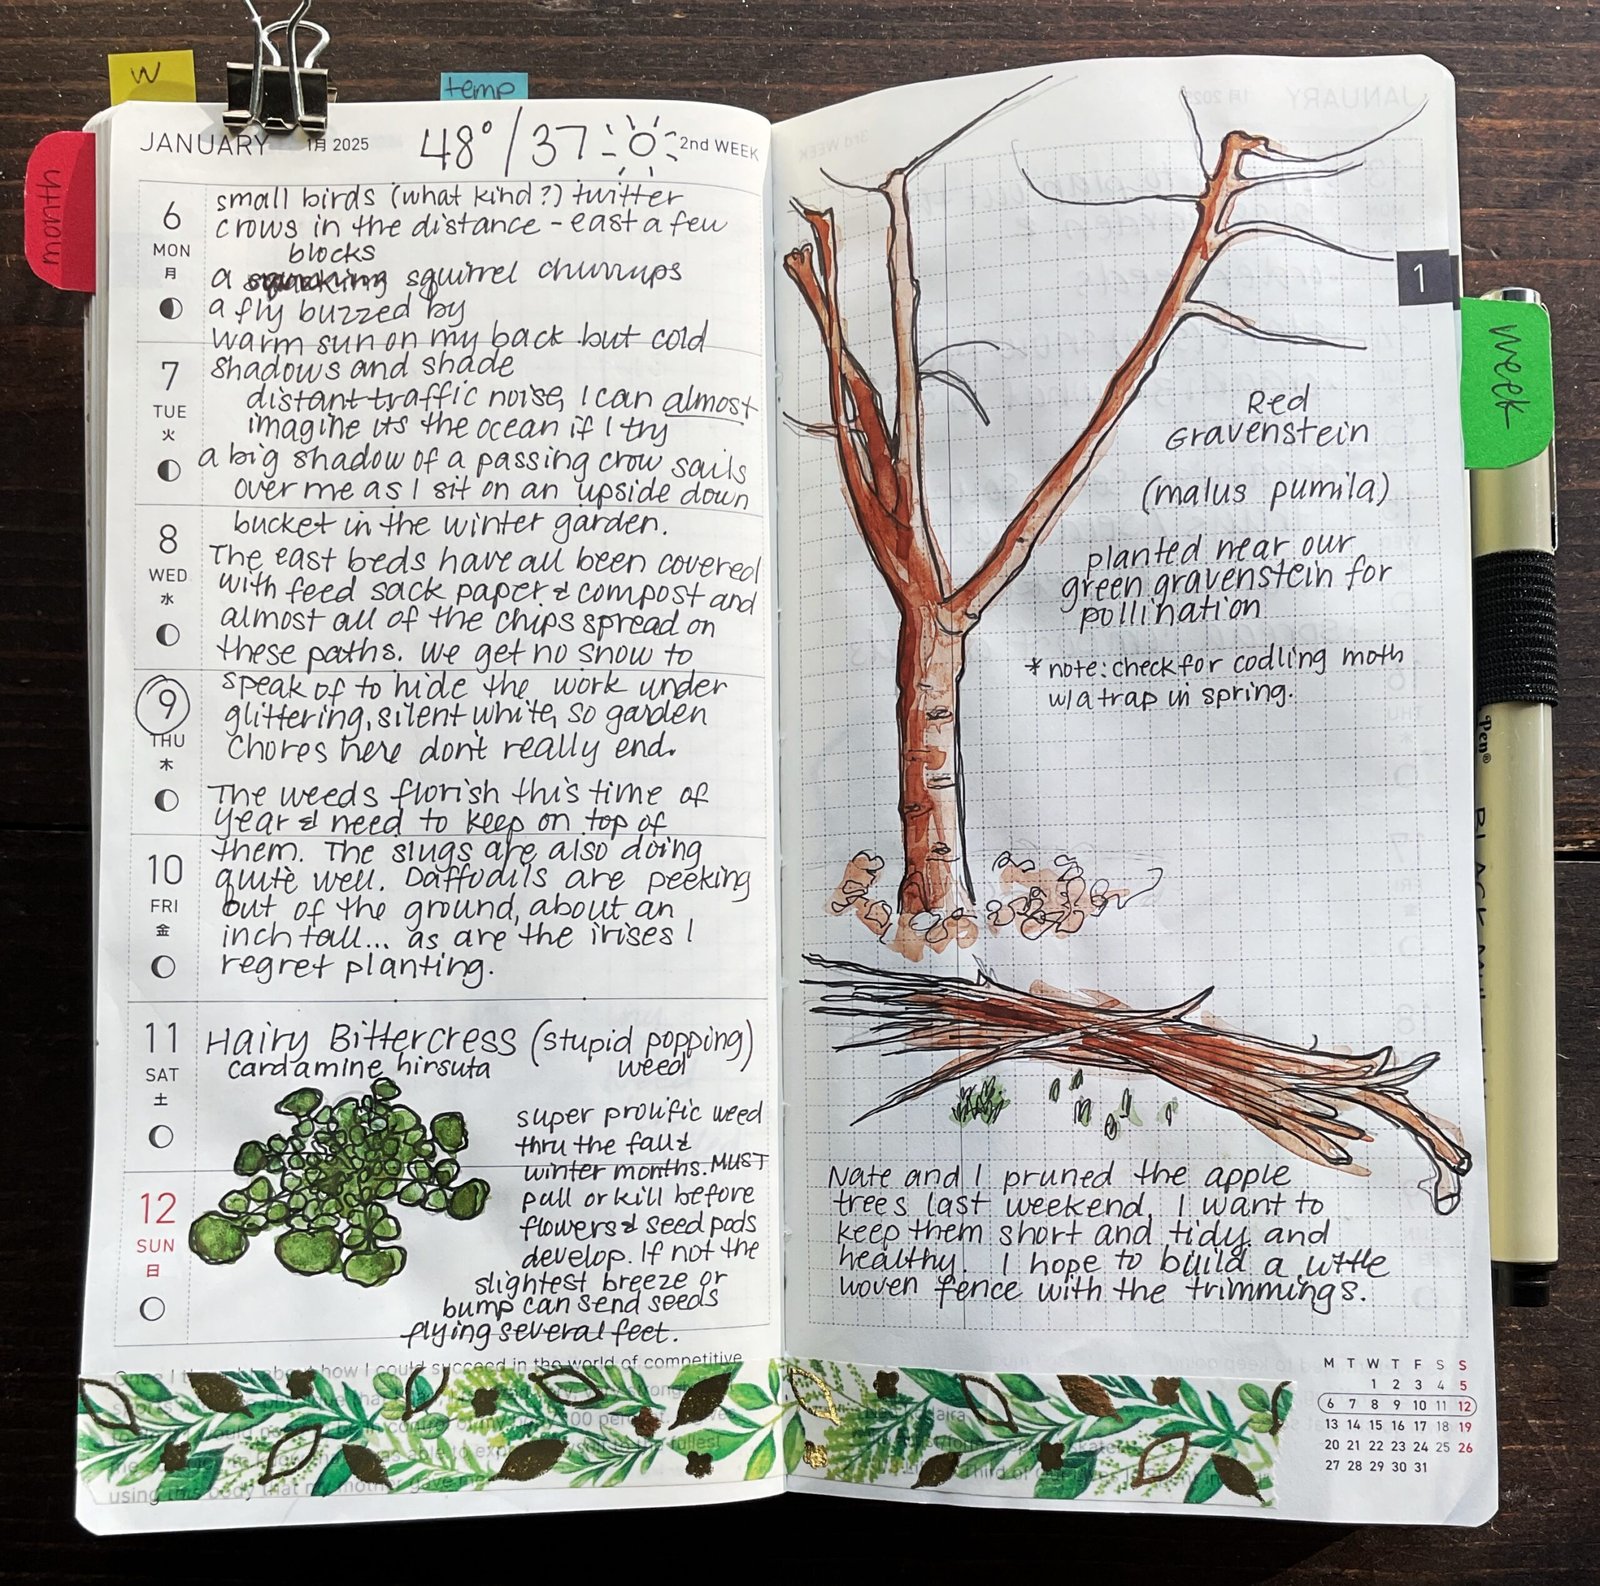 W
temp
month
JANUARY 1月 2025 48°/37 2nd WEEK
6
MON
月
small birds (what kind?) twitter
crows in the distance - east a few
blocks
a squirrel churrups
a fly buzzed by
warm sun on my back but cold
7
TUE
火
shadows and shade
distant traffic noise, I can almost
imagine its the ocean if I try
a big shadow of a passing crow sails
over me as I sit on an upside down
8
WED
水
bucket in the winter garden.
The east beds have all been covered
with feed sack paper & compost and
almost all of the chips spread on
these paths. We get no snow to
9
THU
木
speak of to hide the work under
glittering, silent white, so garden
chores here don't really end.
The weeds florish this time of
year & need to keep on top of
10
FRI
金
them. The slugs are also doing
quite well. Daffodils are peeking
out of the ground, about an
inch tall... as are the irises I
regret planting.
11
SAT
土
Hairy Bittercress (stupid popping)
cardamine hirsuta weed
super prolific weed
thru the fall &
winter months. MUST
12
SUN
日
pull or kill before
flowers & seed pods
develop. If not the
slightest breeze or
bump can send seeds
flying several feet.
how I could succeed in the world of competitive
using this body that my mother gave me
1
week
Red
Gravenstein
(malus pumila)
planted near our
green gravenstein for
pollination
* note: check for codling moth
w/a trap in spring.
Nate and I pruned the apple
trees last weekend. I want to
keep them short and tidy and
healthy. I hope to build a little
woven fence with the trimmings.
M T W T F S S
1 2 3 4 5
6 7 8 9 10 11 12
13 14 15 16 17 18 19
20 21 22 23 24 25 26
27 28 29 30 31
Pen®
BLACK